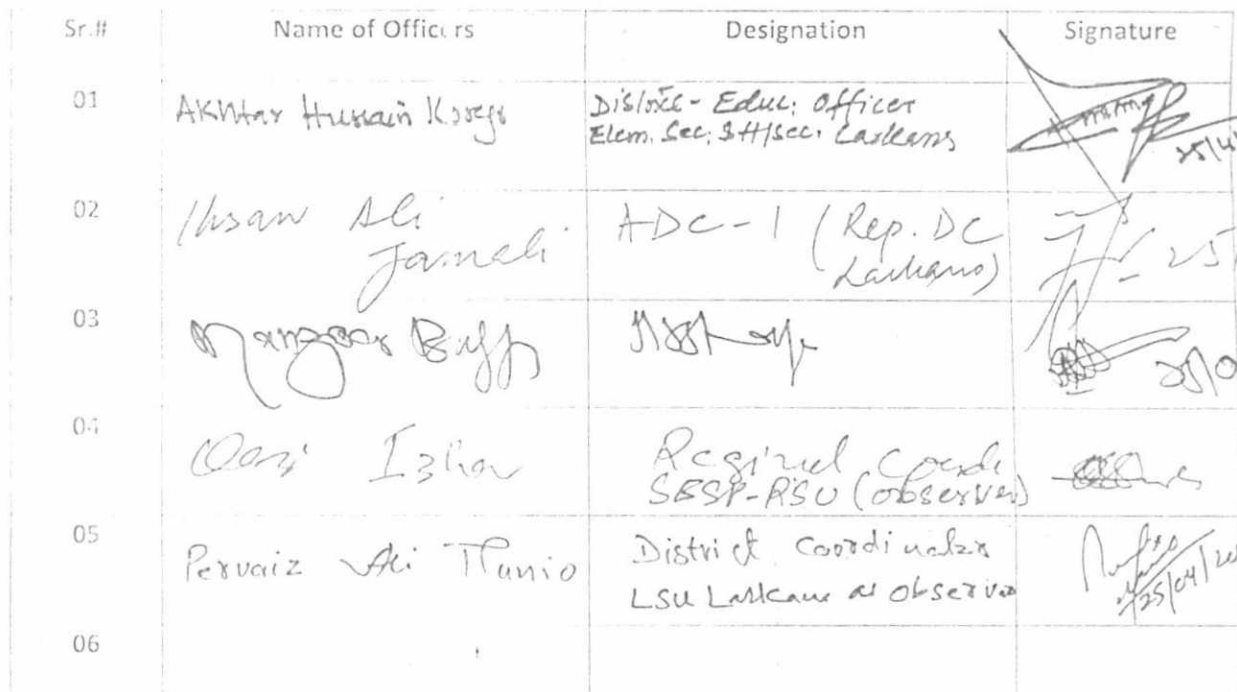 Sr.# Name of Officers Designation Signature
01 Akhtar Hussain District - Educ; Officer
Elem. Sec; & H/Sec. Larkana 25/4
02 Ihsan Ali ADC-1 (Rep. DC
Jamali Larkano) 25
03 Manzoor 25/0
04 Qazi Izhar Reginel Coord
SESP-RSU (observer)
05 Pervaiz Ali Thunio District Coordinator
LSU Larkana as observer 25/04/20
06